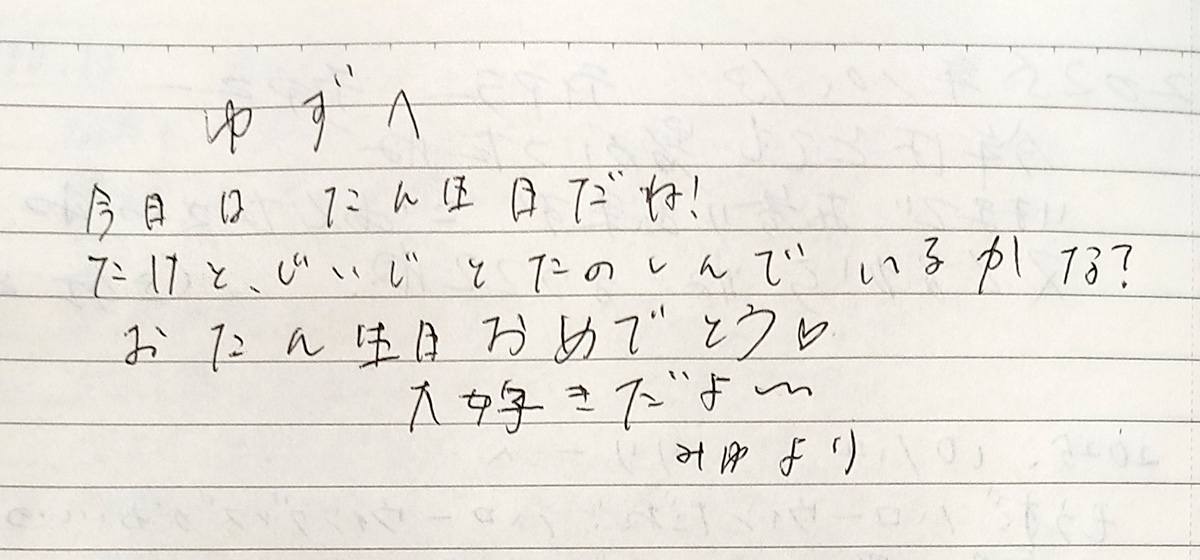 ゆずへ
今日はたん生日だね!
だけと、じいじとたのしんでいるかな?
おたん生日おめでとう♡
大好きだよ〜
みゆより